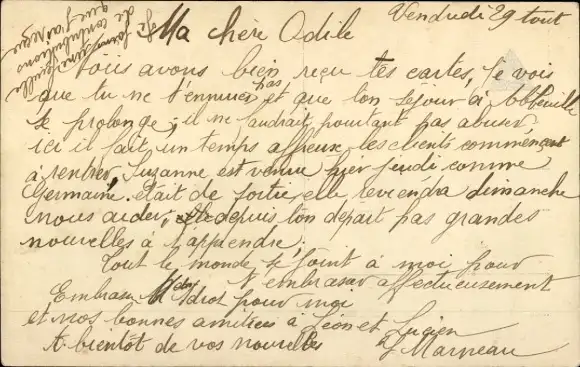 Vendredi 29 tout
Ma chère Odile
Nous avons bien reçu tes cartes, Je vois
que tu ne t'ennuies pas et que ton séjour à Abbeville
se prolonge; il ne faudrait pourtant pas abuser,
ici il fait un temps affreux les clients commencent
à rentrer, Suzanne est venue hier jeudi comme
Germaine était de sortie, elle reviendra dimanche
nous aider; depuis ton départ pas grandes
nouvelles à t'apprendre,
Tout le monde se joint à moi pour
t'embrasser affectueusement
Embrasse pour moi
et nos bonnes amitiés à Léon et Lucien
A bientôt de vos nouvelles
Marneau
feuille
de contributions
que